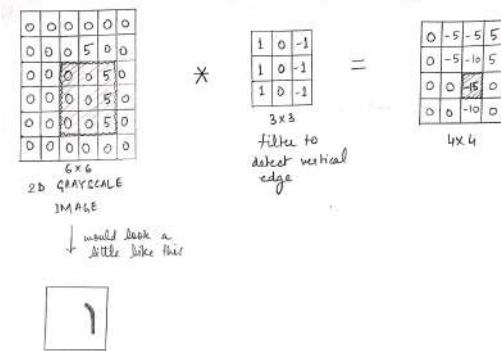 0 0 0 0 0 0
0 0 0 5 0 0
0 0 0 0 5 0
0 0 0 0 5 0
0 0 0 0 5 0
0 0 0 0 0 0
6x6
2D GRAYSCALE
IMAGE
would look a
little like this
*
1 0 -1
1 0 -1
1 0 -1
3x3
filter to
detect vertical
edge
=
0 -5 -5 5
0 -5 -10 5
0 0 -15 0
0 0 -10 0
4x4